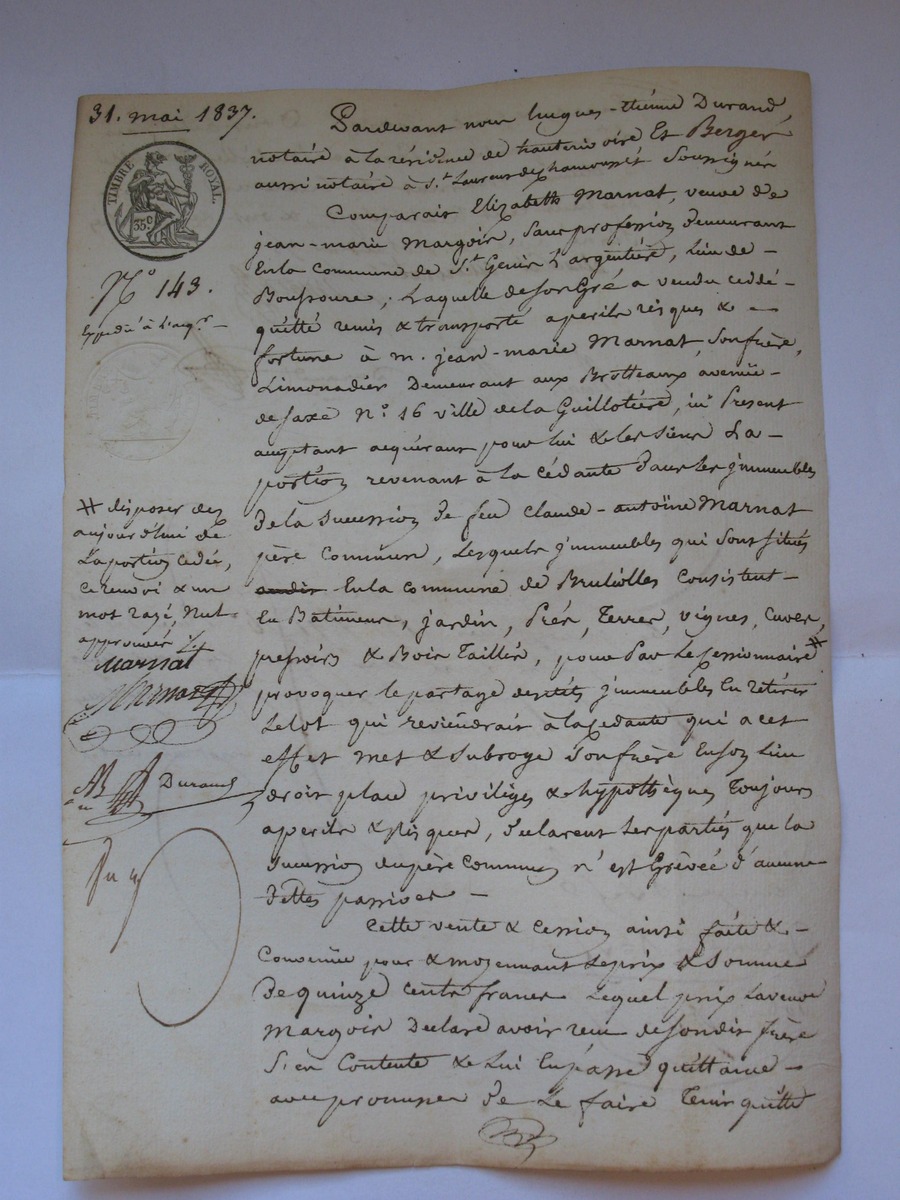 31. mai 1837.
TIMBRE ROYAL.
35 C
N.o 143.
Expédié à l'acq.r —
Pardevant nous hugues-étienne Durand,
notaire à la résidence de hauterivoire Et Berger
aussi notaire à S.t Laurent de chamousset Soussignés
Comparait Elizabeth Marnat, veuve de
jean-marie Margoir, Sans profession, demeurant
En la Commune de S.t Genis L'argentière, Lieu de
Boussoure, Laquelle de son Gré a vendu cédé
quitté remis & transporté a perils risques & —
fortune à m. jean-marie Marnat, Son frère,
Limonadier Demeurant aux Brotteaux avenüe
de saxe N.o 16 ville de la Guillotière, ici Présent
acceptant acquérant pour lui & les siens La —
portion revenant à la cédante dans les jmmeubles
de la sucession de feu claude-antoine Marnat
père Commun, Lesquels jmmeubles qui Sont Situés
En la commune de Brullolles Consistent —
En Batimens, jardin, Prés, Terres, vignes, Cuves,
pressoirs & Bois Taillis, pour Par Le Cessionnaire #
provoquer le partage desdits jmmeubles En retirer
Le lot qui reviendrait à la cedante qui a cet
effet met & subroge Son frère En son Lieu
droit place priviléges & hypothèques Toujours
a perils & Risques, déclarent Les parties que la
sucession du père Commun n'est Grèvée d'aucune
dettes passives —
Cette vente & cession ainsi faite & —
Convenüe pour & moyennant Le prix & Somme
De quinze cents francs Lequel prix La veuve
Margoir Declare avoir recu de Sondit frère
S'en Contente & Lui En passe quittance —
avec promesse de Le faire Tenir quitte
# disposer dès
aujourd'hui de
La portion cedée,
ce renvoi & un
mot rayé, Nul
approuvés
Marnat
Marnat
Durand